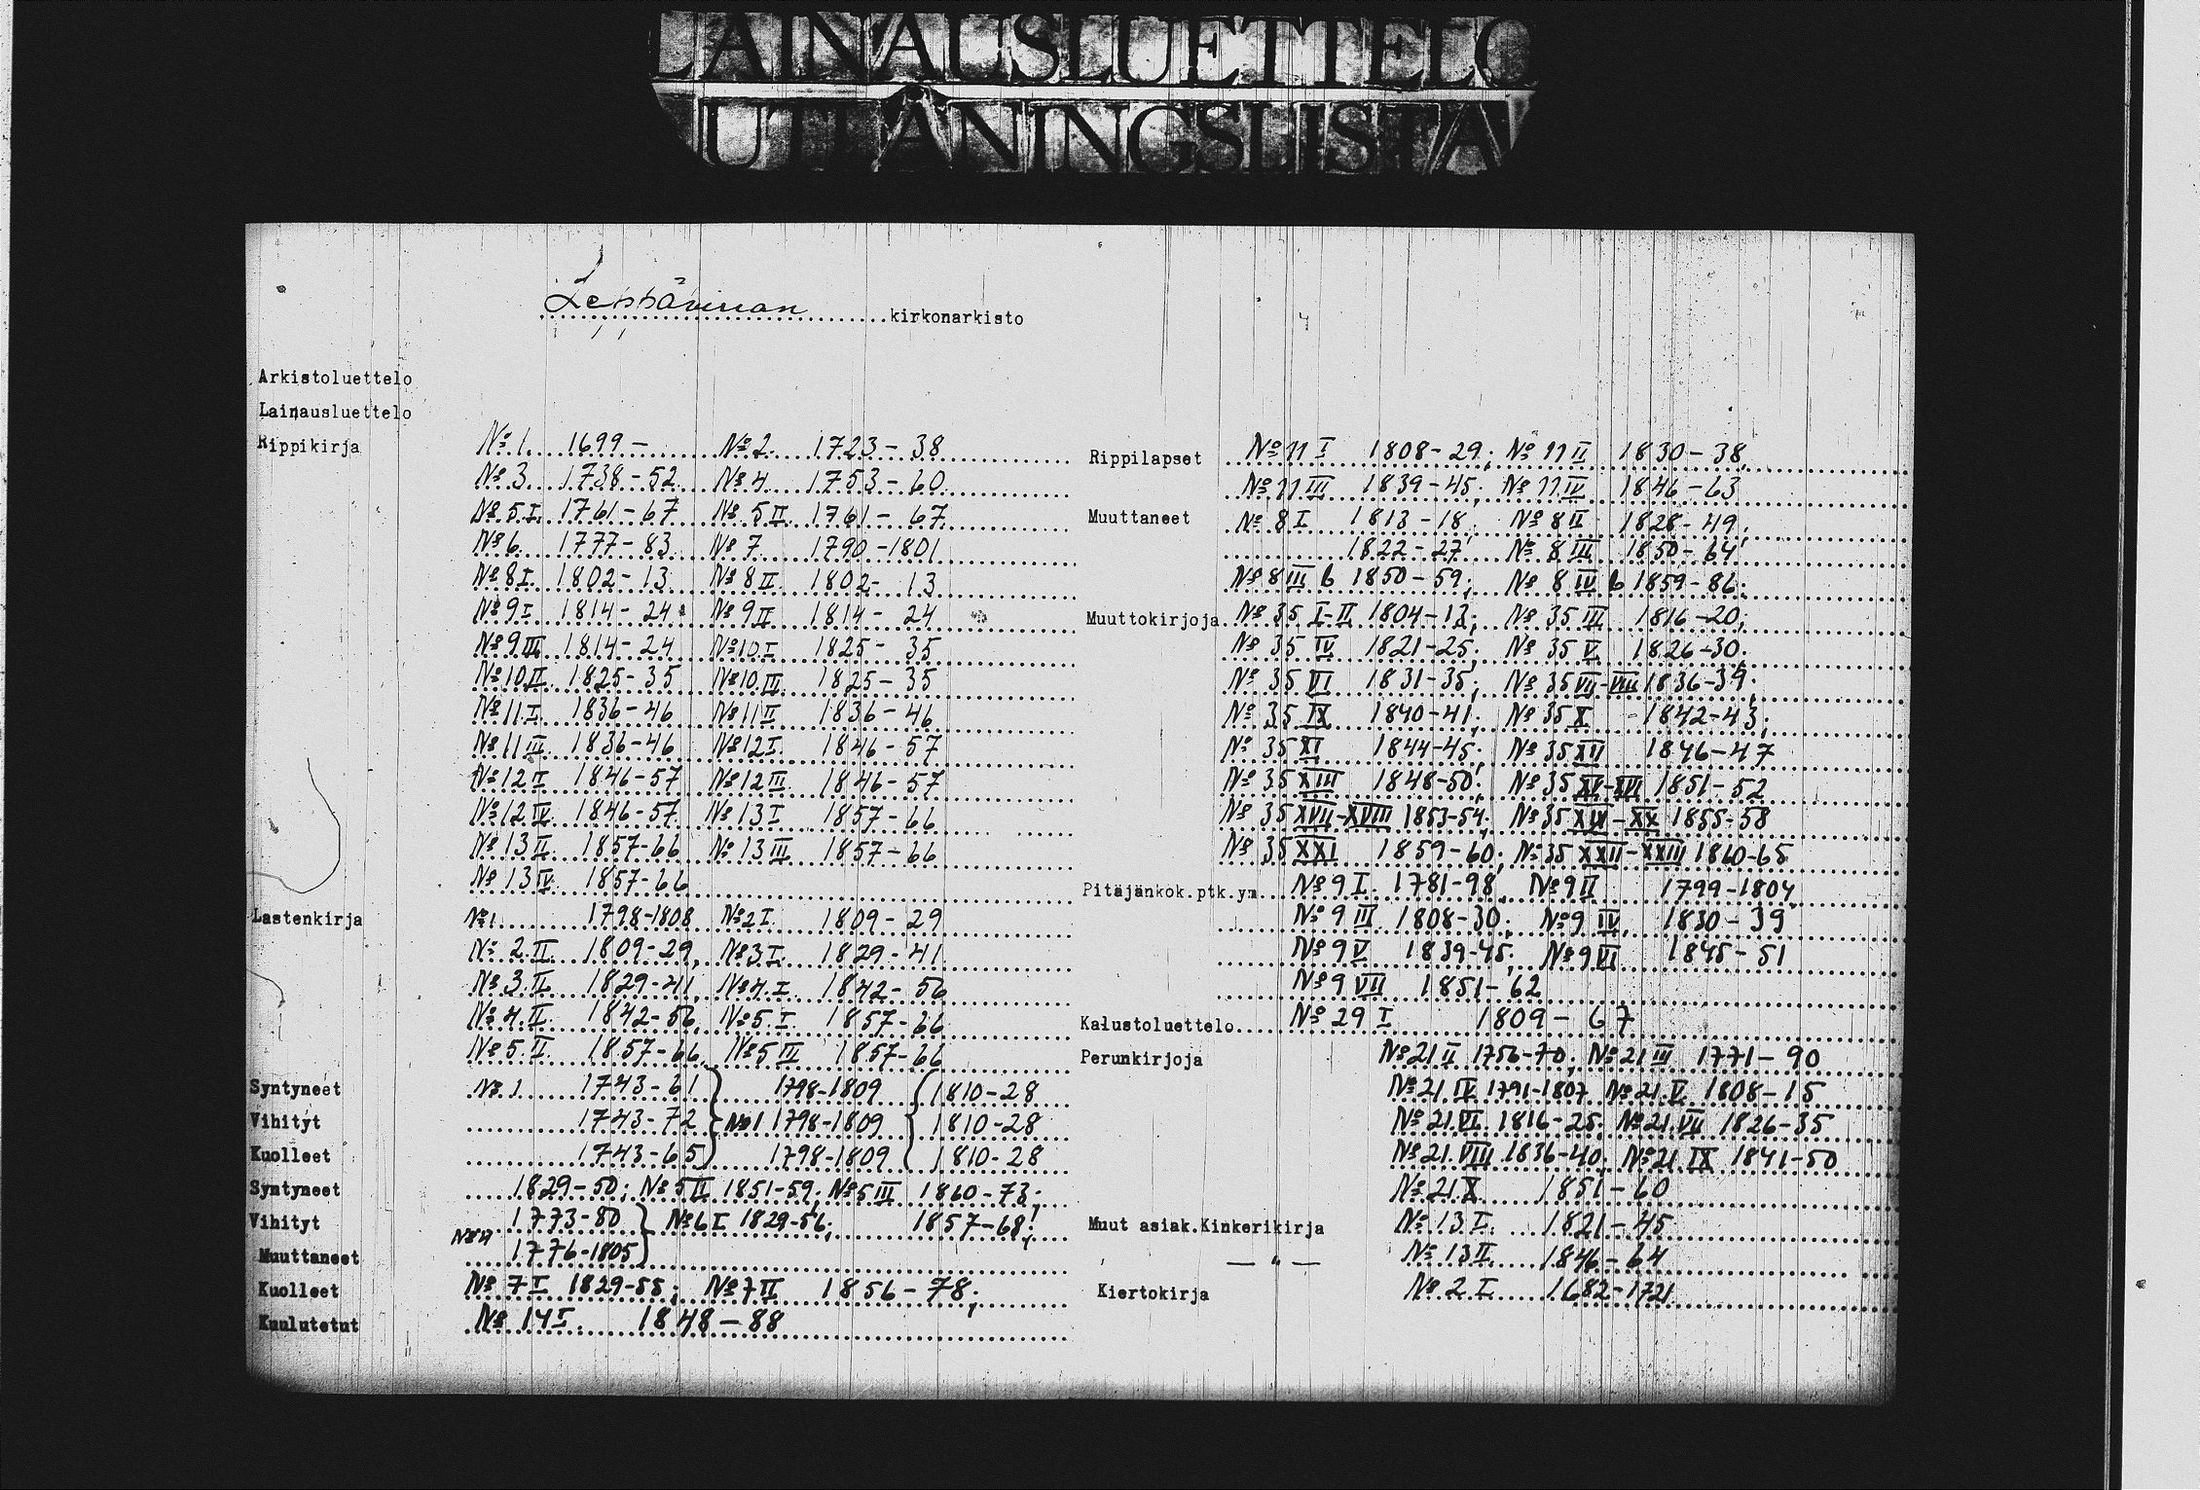 LAINAUSLUETTELO
UTLÅNINGSLISTA
Leppävirran kirkonarkisto
Arkistoluettelo
Lainausluettelo
Rippikirja № 1. 1699 – № 2. 1723 – 38
№ 3 1738 – 52 № 4 1753 – 60
№ 5 I 1761 – 67 № 5 II 1761 – 67
№ 6 1777 – 83 № 7 1790 – 1801
№ 8 I 1802 – 13 № 8 II 1802 – 13
№ 9 I 1814 – 24 № 9 II 1814 – 24
№ 9 III 1814 – 24 № 10 I 1825 – 35
№ 10 II 1825 – 35 № 10 III 1825 – 35
№ 11 I 1836 – 46 № 11 II 1836 – 46
№ 11 III 1836 – 46 № 12 I 1846 – 57
№ 12 II 1846 – 57 № 12 III 1846 – 57
№ 12 IV 1846 – 57 № 13 I 1857 – 66
№ 13 II 1857 – 66 № 13 III 1857 – 66
№ 13 IV 1857 – 66
Lastenkirja № 1 1798 – 1808 № 2 I 1809 – 29
№ 2 II 1809 – 29, № 3 I 1829 – 41
№ 3 II 1829 – 41, № 4 I 1842 – 56
№ 4 II 1842 – 56, № 5 I 1857 – 66
№ 5 II 1857 – 66, № 5 III 1857 – 66
Syntyneet № 1 1743 – 61 } 1798 – 1809 { 1810 – 28
Vihityt 1743 – 72 } № 1 1798 – 1809 { 1810 – 28
Kuolleet 1743 – 65 } 1798 – 1809 { 1810 – 28
Syntyneet 1829 – 50; № 5 II 1851 – 59; № 5 III 1860 – 73;
Vihityt 1773 – 80 } № 6 I 1829 – 56; 1857 – 68;
Muuttaneet 1776 – 1805 }
Kuolleet № 7 I 1829 – 55; № 7 II 1856 – 78;
Kuulutetut № 14 I 1848 – 88
Rippilapset № 11 I 1808 – 29; № 11 II 1830 – 38,
№ 11 III 1839 – 45; № 11 IV 1846 – 63
Muuttaneet № 8 I 1813 – 18; № 8 II 1828 – 49;
1822 – 27; № 8 III 1850 – 64;
№ 8 III b 1850 – 59; № 8 IV b 1859 – 86;
Muuttokirjoja № 35 I-II 1804 – 12; № 35 III 1816 – 20;
№ 35 IV 1821 – 25; № 35 V 1826 – 30;
№ 35 VI 1831 – 35; № 35 VII-VIII 1836 – 39;
№ 35 IX 1840 – 41; № 35 X 1842 – 43;
№ 35 XI 1844 – 45; № 35 XII 1846 – 47
№ 35 XIII 1848 – 50; № 35 XV-XVI 1851 – 52
№ 35 XVII-XVIII 1853 – 54; № 35 XIX-XX 1855 – 58
№ 35 XXI 1859 – 60; № 35 XXII-XXIII 1860 – 65
Pitäjänkok.ptk.ym № 9 I 1781 – 98, № 9 II 1799 – 1804
№ 9 III 1808 – 30; № 9 IV 1830 – 39
№ 9 V 1839 – 45; № 9 VI 1845 – 51
№ 9 VII 1851 – 62
Kalustoluettelo № 29 I 1809 – 67
Perunkirjoja № 21 II 1756 – 70; № 21 III 1771 – 90
№ 21 IV 1791 – 1807 № 21 V 1808 – 15
№ 21 VI 1816 – 25; № 21 VII 1826 – 35
№ 21 VIII 1836 – 40; № 21 IX 1841 – 50
№ 21 X 1851 – 60
Muut asiak.Kinkerikirja № 13 I 1821 – 45
— " — № 13 II 1846 – 64
Kiertokirja № 2 I 1682 – 1721